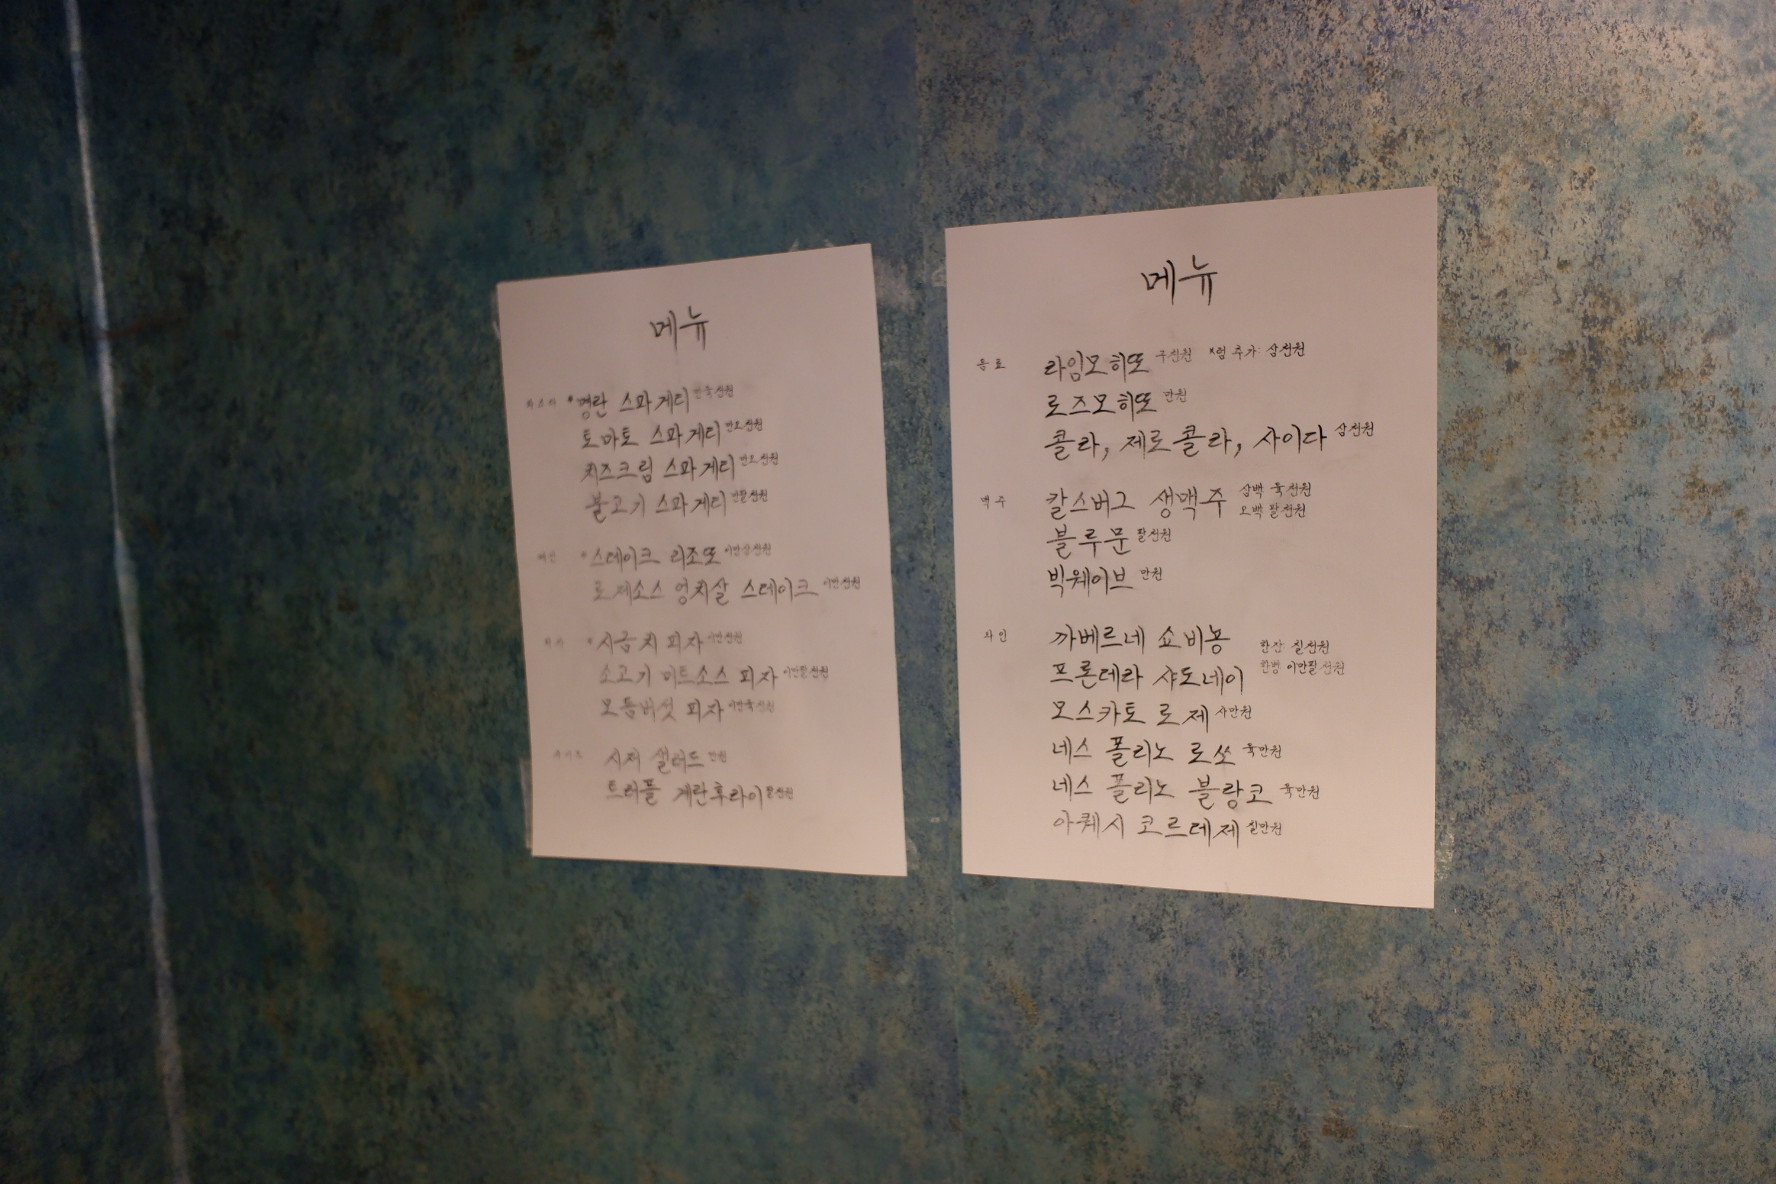 메뉴
파스타 *명란 스파게티 만육천원
토마토 스파게티 만오천원
치즈크림 스파게티 만오천원
불고기 스파게티 만팔천원
메인 *스테이크 리조또 이만삼천원
로제소스 엉치살 스테이크
피자 *시금치 피자
소고기 미트소스 피자 이만팔천원
모듬버섯 피자 이만육천원
시저 샐러드 만원
트러플 계란후라이 팔천원
메뉴
음료 라임모히또 구천원 *럼 추가: 삼천원
로즈모히또 만원
콜라, 제로콜라, 사이다 삼천원
맥주 칼스버그 생맥주 삼백 육천원
오백 팔천원
블루문 팔천원
빅웨이브 만원
와인 까베르네 쇼비뇽 한잔 칠천원
프론테라 샤도네이 한병 이만팔천원
모스카토 로제 사만원
네스 폴리노 로쏘 육만원
네스 폴리노 블랑코 육만원
아퀘시 코르테제 칠만원